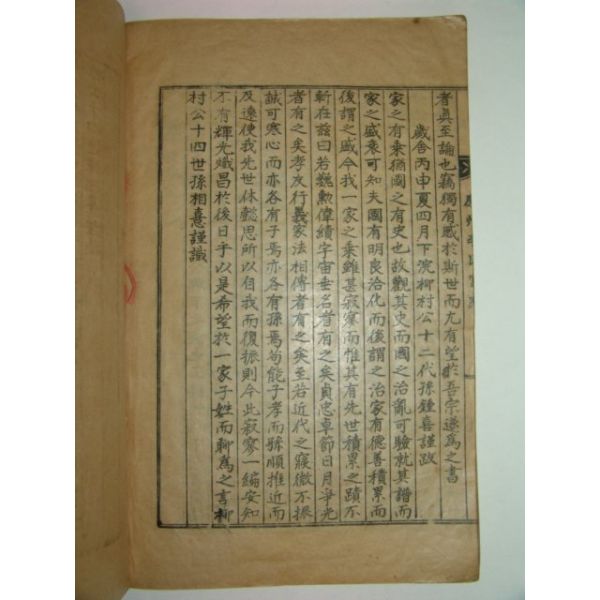 者眞至論也竊獨有感於斯世而尤有望於吾宗遂爲之書
歲舍丙申夏四月下浣柳村公十二代孫鍾喜謹跋
家之有乘猶國之有史也故觀其史而國之治亂可驗就其譜而
家之盛衰可知夫國有明良治化而後謂之治家有德善積累而
後謂之盛今我一家之乘雖甚寂寥而惟其有先世積累之蹟不
斬在玆曰若魏勳偉績宇宙垂名者有之矣貞忠卓節日月爭光
者有之矣孝友行義家法相傳者有之矣至若近代之寢微不振
誠可寒心而亦各有子焉亦各有孫焉苟能子孝而孫順推近而
及遠使我先世休懿思所以自我而復振則今此寂寥一編安知
不有輝光熾昌於後日乎以是希望於一家子姓而聊爲之言柳
村公十四世孫相憙謹識